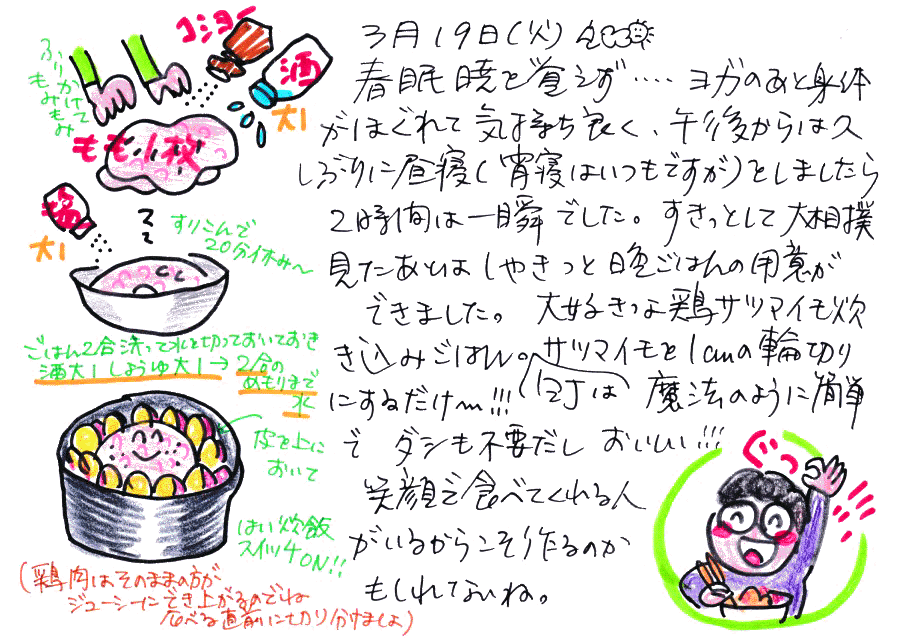 コショー
ふりかけて
もみもみ
酒
大1
もも1枚
塩
大1
すりこんで
20分休み〜
ごはん2合洗って水を切っておいておき
酒大1しょうゆ大1→2合の
めもりまで
水
皮を上に
おいて
はい炊飯
スイッチON!!
(鶏肉はそのままの方が
ジューシーにでき上がるのでね
食べる直前に切り分けましょ)
3月19日(火)
春眠暁を覚えず‥‥ ヨガのあと身体
がほぐれて気持ち良く、午後からは久
しぶりに昼寝(宵寝はいつもですが)としましたら
2時間は一瞬でした。すきっとして大相撲
見たあとはしゃきっと晩ごはんの用意が
できました。大好きな鶏サツマイモ炊
き込みごはん。サツマイモを1cmの輪切り
にするだけ〜!!! は 魔法のように簡単
で ダシも不要だし おいしい!!!
笑顔で食べてくれる人
がいるからこそ作るのか
もしれないね。
ぐっ